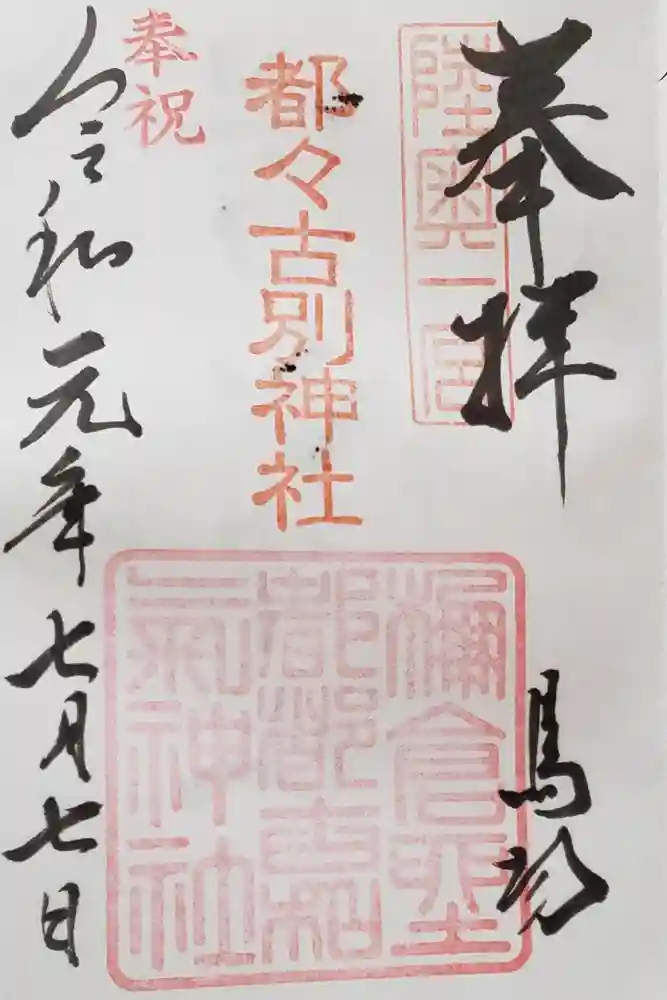 奉拝
陸奥一宮
馬場
都々古別神社
奉祝
令和元年七月七日